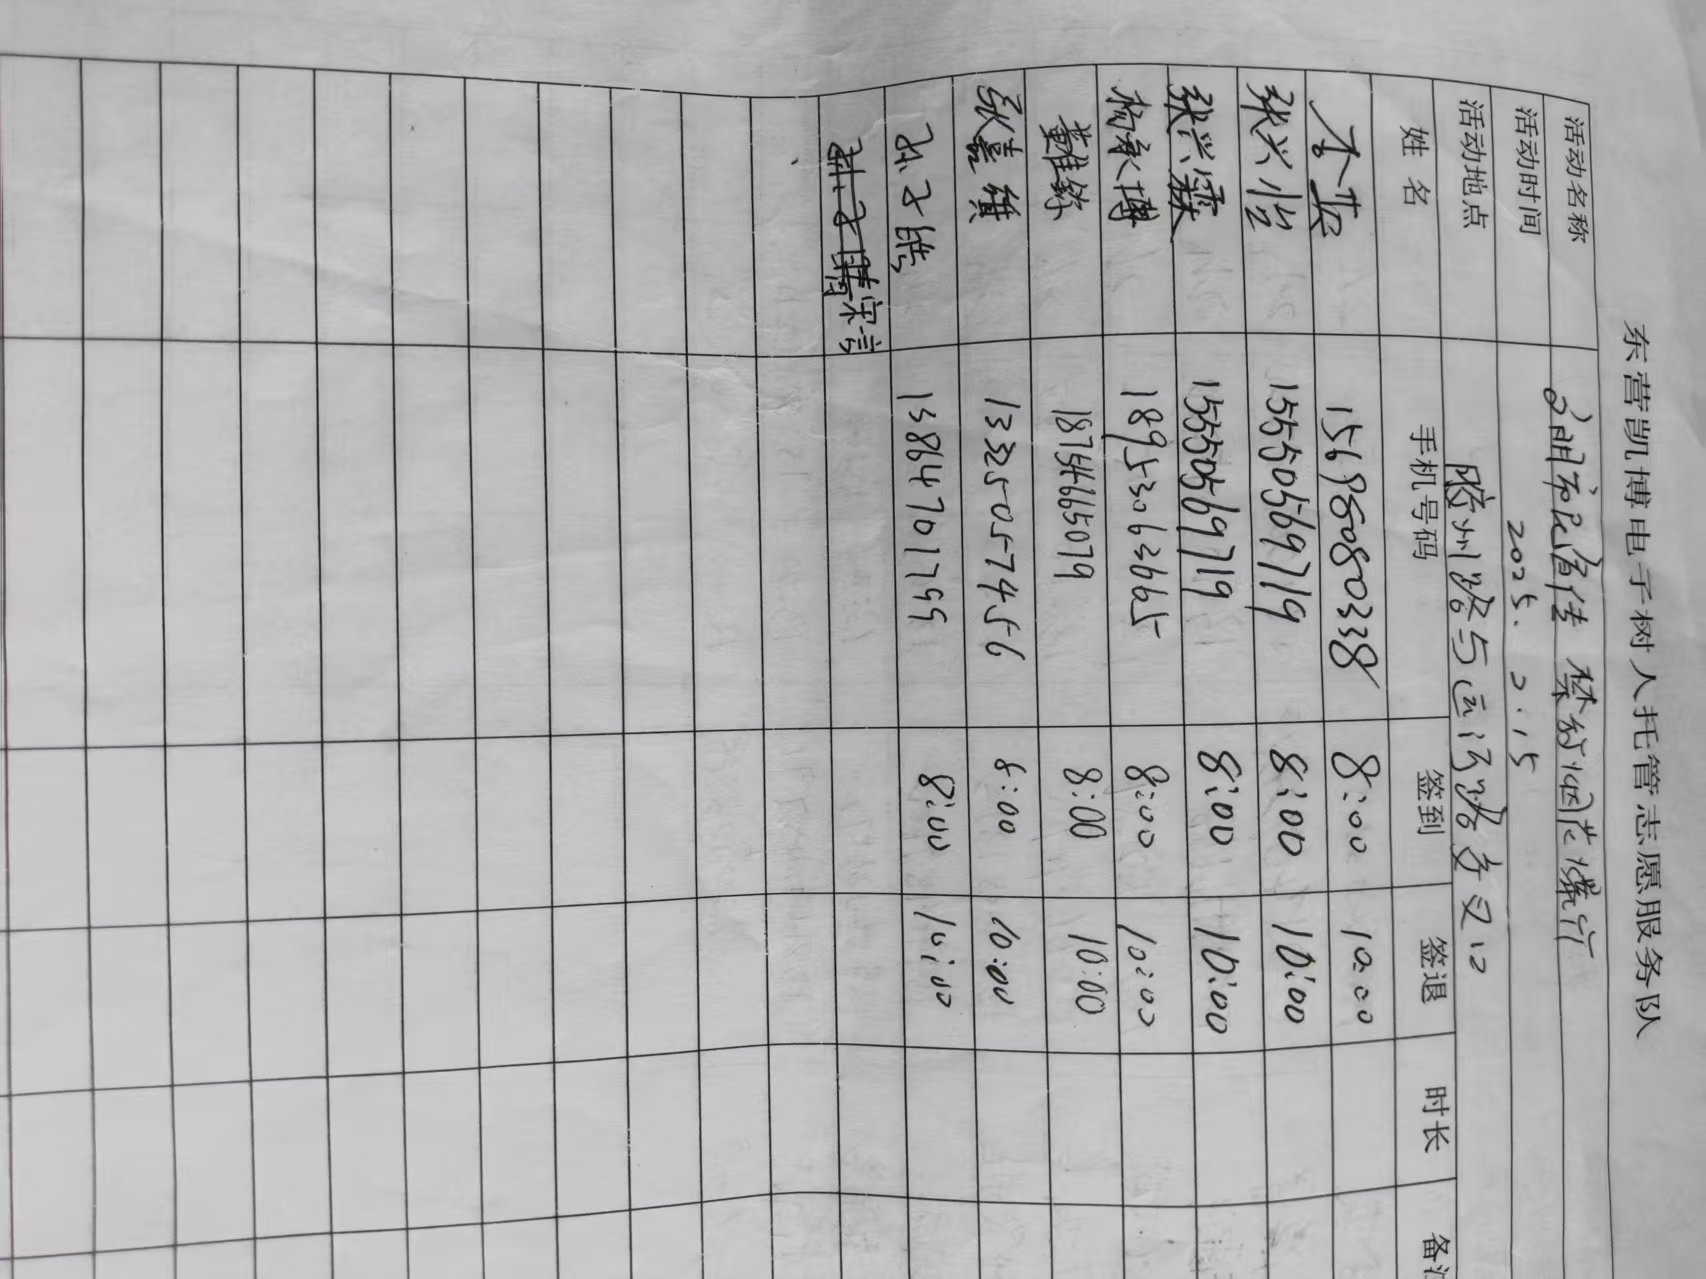 东营凯博电子树人托管志愿服务队
活动名称 文明市民宣传 禁放烟花爆竹
活动时间 2025.2.15
活动地点 胶州路与运河路交叉口
姓名 手机号码 签到 签退 时长 备注
15698080338 8:00 10:00
张兴怡 15550569719 8:00 10:00
张兴霖 15550569719 8:00 10:00
杨承博 18953063665 8:00 10:00
18754665079 8:00 10:00
13325057456 8:00 10:00
13864701799 8:00 10:00
宋言